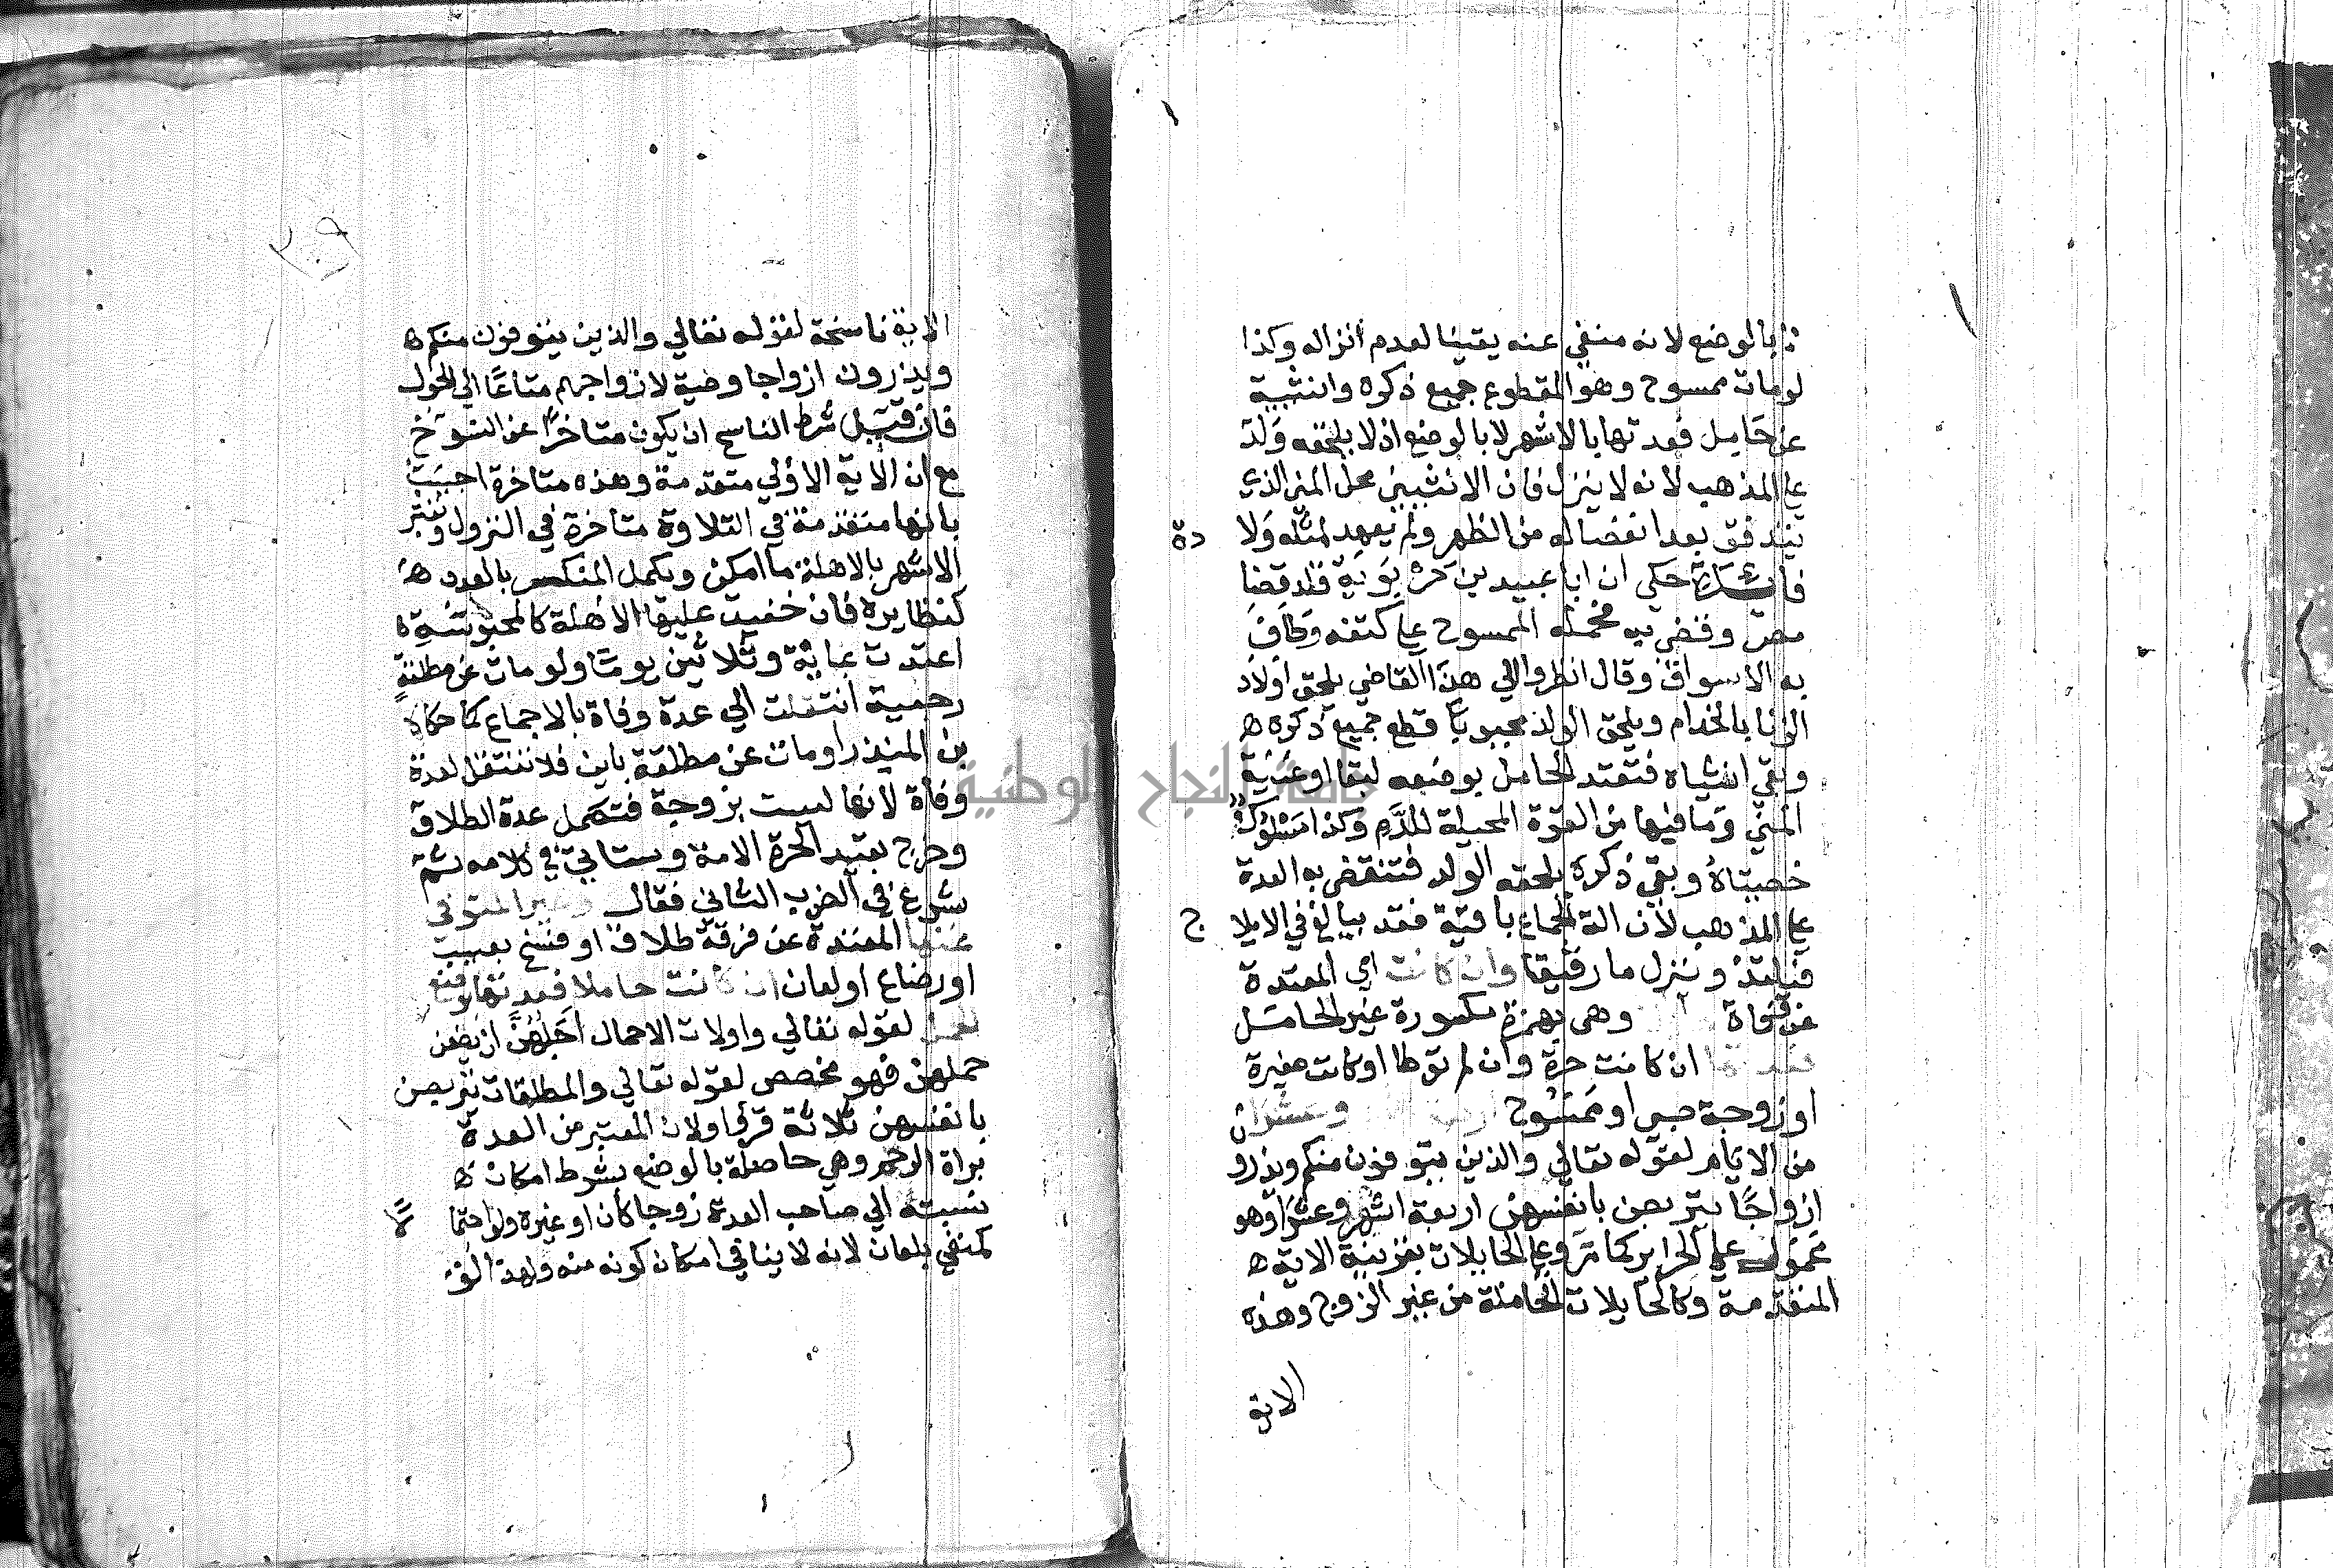 لا بالوضع لانه منفي عنه يقينا لعدم انزاله وكذا
لومات ممسوح وهو المقطوع جميع ذكره وانثييه
عن حامل فعدتها بالاشهر لا بالوضع اذ لا يلحقه ولد
علي المذهب لانه لا ينزل فان الانثيين محل المني الذي
يتدفق بعد انفصاله من الظهر ولم يعهد لمثله ولا
دة
فايدة حكي ان ابا عبيد بن حربويه قلد قضا
مصر وقضي به فحمله الممسوح علي كتفه وطاف
به الاسواق وقال انظروا الي هذا القاضي يلحق اولاد
الزنا بالخدام ويلحق الولد مجبوبا قطع جميع ذكره ه
وبقي انثياه فتعتد الحامل بوضعه لبقا اوعية
المني وما فيها من القوة المحيلة للدم وكذا مسلول
خصيتاه وبقي ذكره يلحقه الولد فتنقضي به العدة
علي المذهب لان الة الجماع باقية فقد يبالغ في الايلا
ج
فيلتذ وينزل ما رقيقا وان كانت اي المعتدة
عن وفاة وهي بهمزة مكسورة غير الحامل
ان كانت حرة وان لم توطا او كانت صغيرة
او زوجة صبي او ممسوح وعشران
من الايام لقوله تعالي والذين يتوفون منكم ويذرو
ازواجا يتربصن بانفسهن اربعة اشهر وعشرا وهو
محمول علي الحراير كما مر وعلي الحايلات بقرينة الاية ه
المتقدمة وكالحايلات الحاملة من غير الزوج وهذه
الاية
٣٠٩
الاية ناسخة لقوله تعالي والذين يتوفون منكم ه
ويذرون ازواجا وصية لازواجهم متاعا الي الحول
فان قيل شرط الناسخ ان يكون متاخرا عن المنسوخ
مع ان الاية الاولي متقدمة وهذه متاخرة اجيب
بانها متقدمة في التلاوة متاخرة في النزول وتعتبر
الاشهر بالاهلة ما امكن ويكمل المنكسر بالعدد ه
كنظايره فان خفيت عليها الاهلة كالمحبوسة
اعتدت بماية وثلاثين يوما ولو مات عن مطلقة
رجعية انتقلت الي عدة وفاة بالاجماع كما حكاه
بن المنذر او مات عن مطلقة باين فلا تنتقل لعدة
وفاة لانها ليست بزوجة فتكمل عدة الطلاق
وخرج بقيد الحرة الامة وستاتي في كلامه ثم
شرع في الضرب الثاني فقال وغير المتوفي
عنها المعتدة عن فرقة طلاق او فسخ بعيب
او رضاع او لعان ان كانت حاملا فعدتها بوضع
الحمل لقوله تعالي واولات الاحمال اجلهن ان يضعن
حملهن فهو مخصص لقوله تعالي والمطلقات يتربصن
بانفسهن ثلاثة قروء ولان المعتبر من العدة
براة الرحم وهي حاصلة بالوضع بشرط امكان ه
نسبته الي صاحب العدة زوجا كان او غيره ولو احتما
لا
كمنفي بلعان لانه لا ينافي امكان كونه منه ولهذا